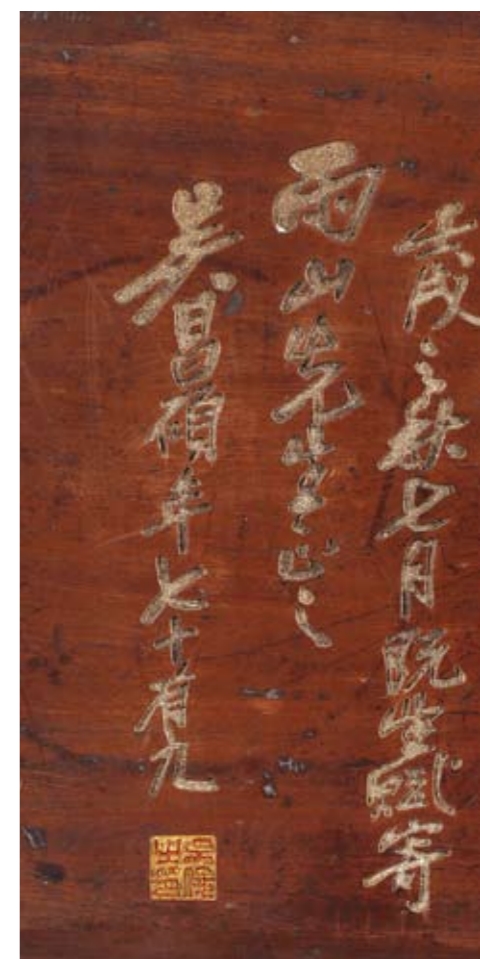 壬戌之秋七月既望賦寄
雨山先生正之
吳昌碩年七十有九
吳俊之印